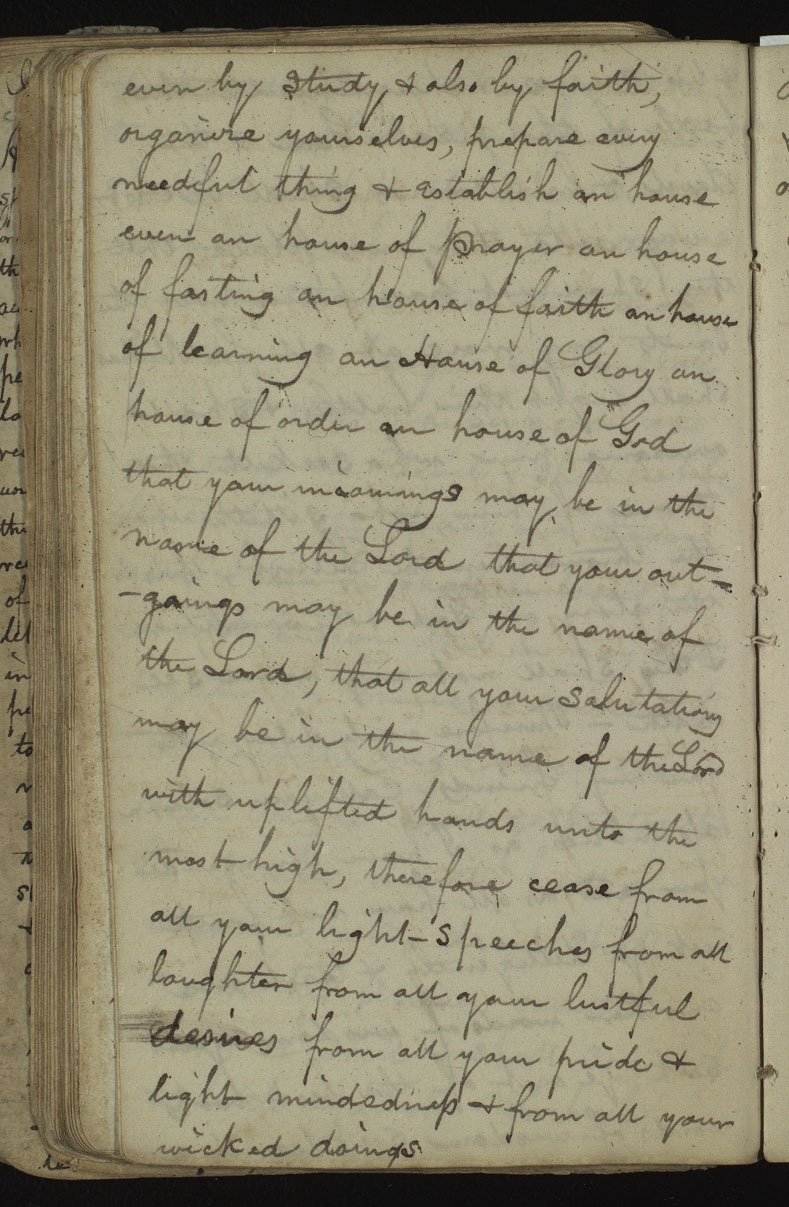 even by study & also by faith,
organize yourselves, prepare every
needful thing & establish an house
even an house of prayer an house
of fasting an house of faith an house
of learning an House of Glory an
house of order an house of God
that your incomings may be in the
name of the Lord that your out=
-goings may be in the name of
the Lord, that all your salutations
may be in the name of the Lord
with uplifted hands unto the
most high, therefore cease from
all your light-speeches from all
laughter from all your lustful
desires from all your pride &
light mindedness & from all your
wicked doings